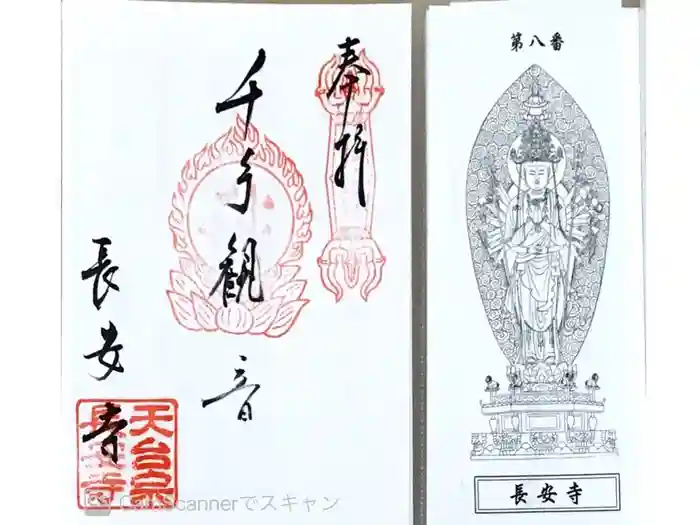 奉拝
千手観音
長安寺
天台宗
長安寺
CamScannerでスキャン
第八番
長安寺